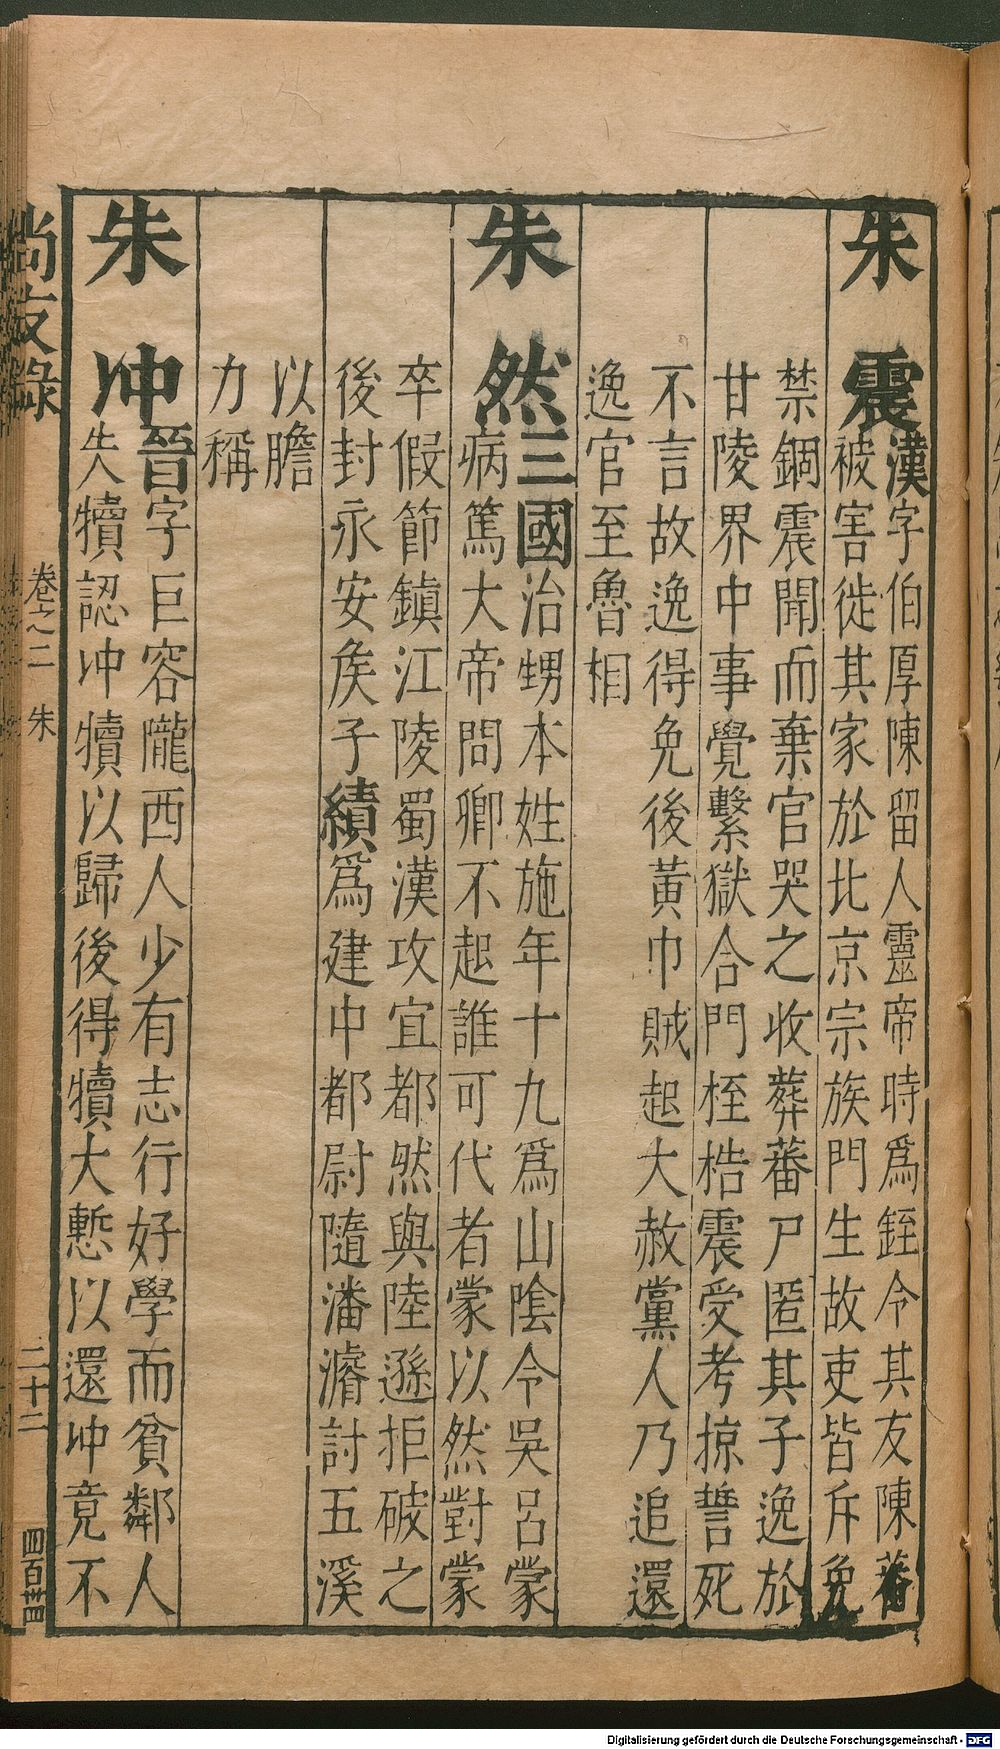 朱震漢字伯厚陳留人靈帝時爲銍令其友陳蕃
被害徙其家於比京宗族門生故吏皆斥免
禁錮震聞而棄官哭之收葬蕃尸匿其子逸於
甘陵界中事覺繫獄合門桎梏震受考掠誓死
不言故逸得免後黃巾賊起大赦黨人乃追還
逸官至魯相
朱然三國治甥本姓施年十九爲山陰令吳呂蒙
病篤大帝問卿不起誰可代者蒙以然對蒙
卒假節鎮江陵蜀漢攻宜都然與陸遜拒破之
後封永安矦子績爲建中都尉隨潘濬討五溪
以膽
力稱
朱冲晉字巨容隴西人少有志行好學而貧鄰人
失犢認冲犢以歸後得犢大慙以還冲竟不
尚友錄
卷之二
朱
二十二
Digitalisierung gefördert durch die Deutsche Forschungsgemeinschaft - DFG